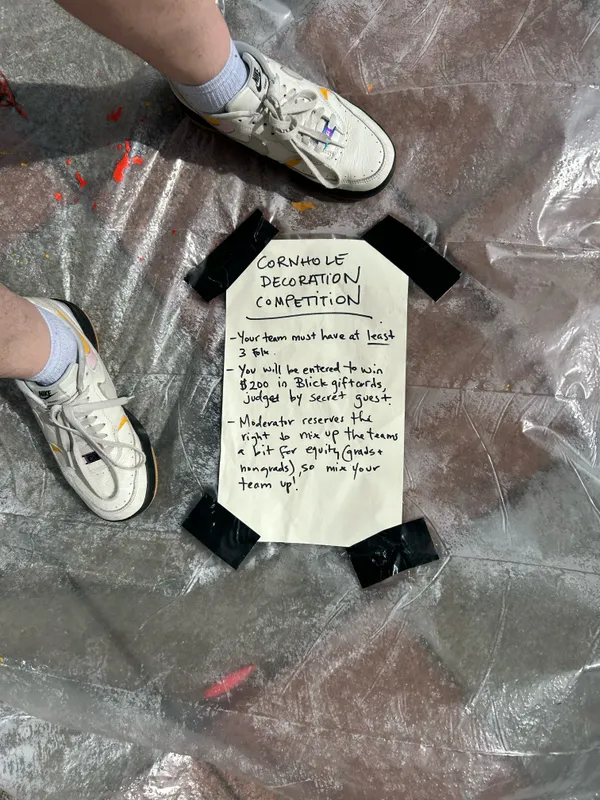 CORNHOLE
DECORATION
COMPETITION
- Your team must have at least
3 folk.
- You will be entered to win
$200 in Blick giftcards,
judged by secret guest.
- Moderator reserves the
right to mix up the teams
a bit for equity (grads +
nongrads), so mix your
team up!
NIKE